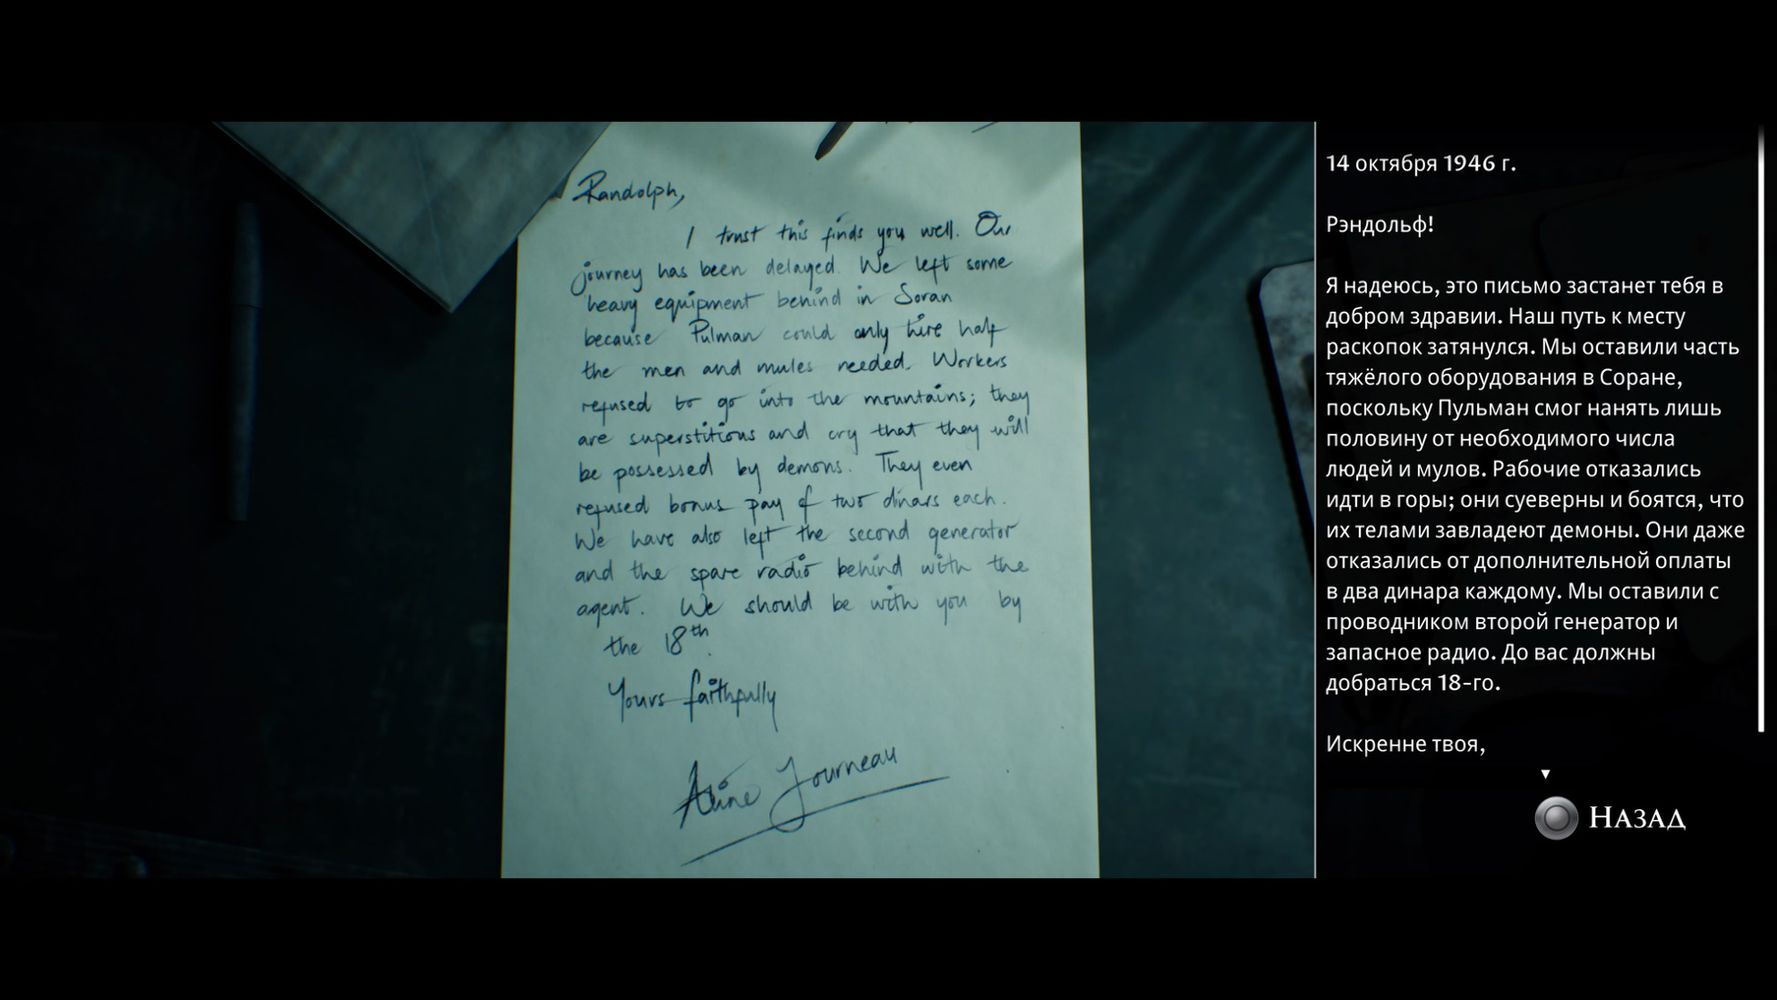 Randolph,
I trust this finds you well. Our
journey has been delayed. We left some
heavy equipment behind in Soran
because Pulman could only hire half
the men and mules needed. Workers
refused to go into the mountains; they
are superstitious and cry that they will
be possessed by demons. They even
refused bonus pay of two dinars each.
We have also left the second generator
and the spare radio behind with the
agent. We should be with you by
the 18th.
Yours faithfully
Aline Journeau
14 октября 1946 г.
Рэндольф!
Я надеюсь, это письмо застанет тебя в
добром здравии. Наш путь к месту
раскопок затянулся. Мы оставили часть
тяжёлого оборудования в Соране,
поскольку Пульман смог нанять лишь
половину от необходимого числа
людей и мулов. Рабочие отказались
идти в горы; они суеверны и боятся, что
их телами завладеют демоны. Они даже
отказались от дополнительной оплаты
в два динара каждому. Мы оставили с
проводником второй генератор и
запасное радио. До вас должны
добраться 18-го.
Искренне твоя,
НАЗАД